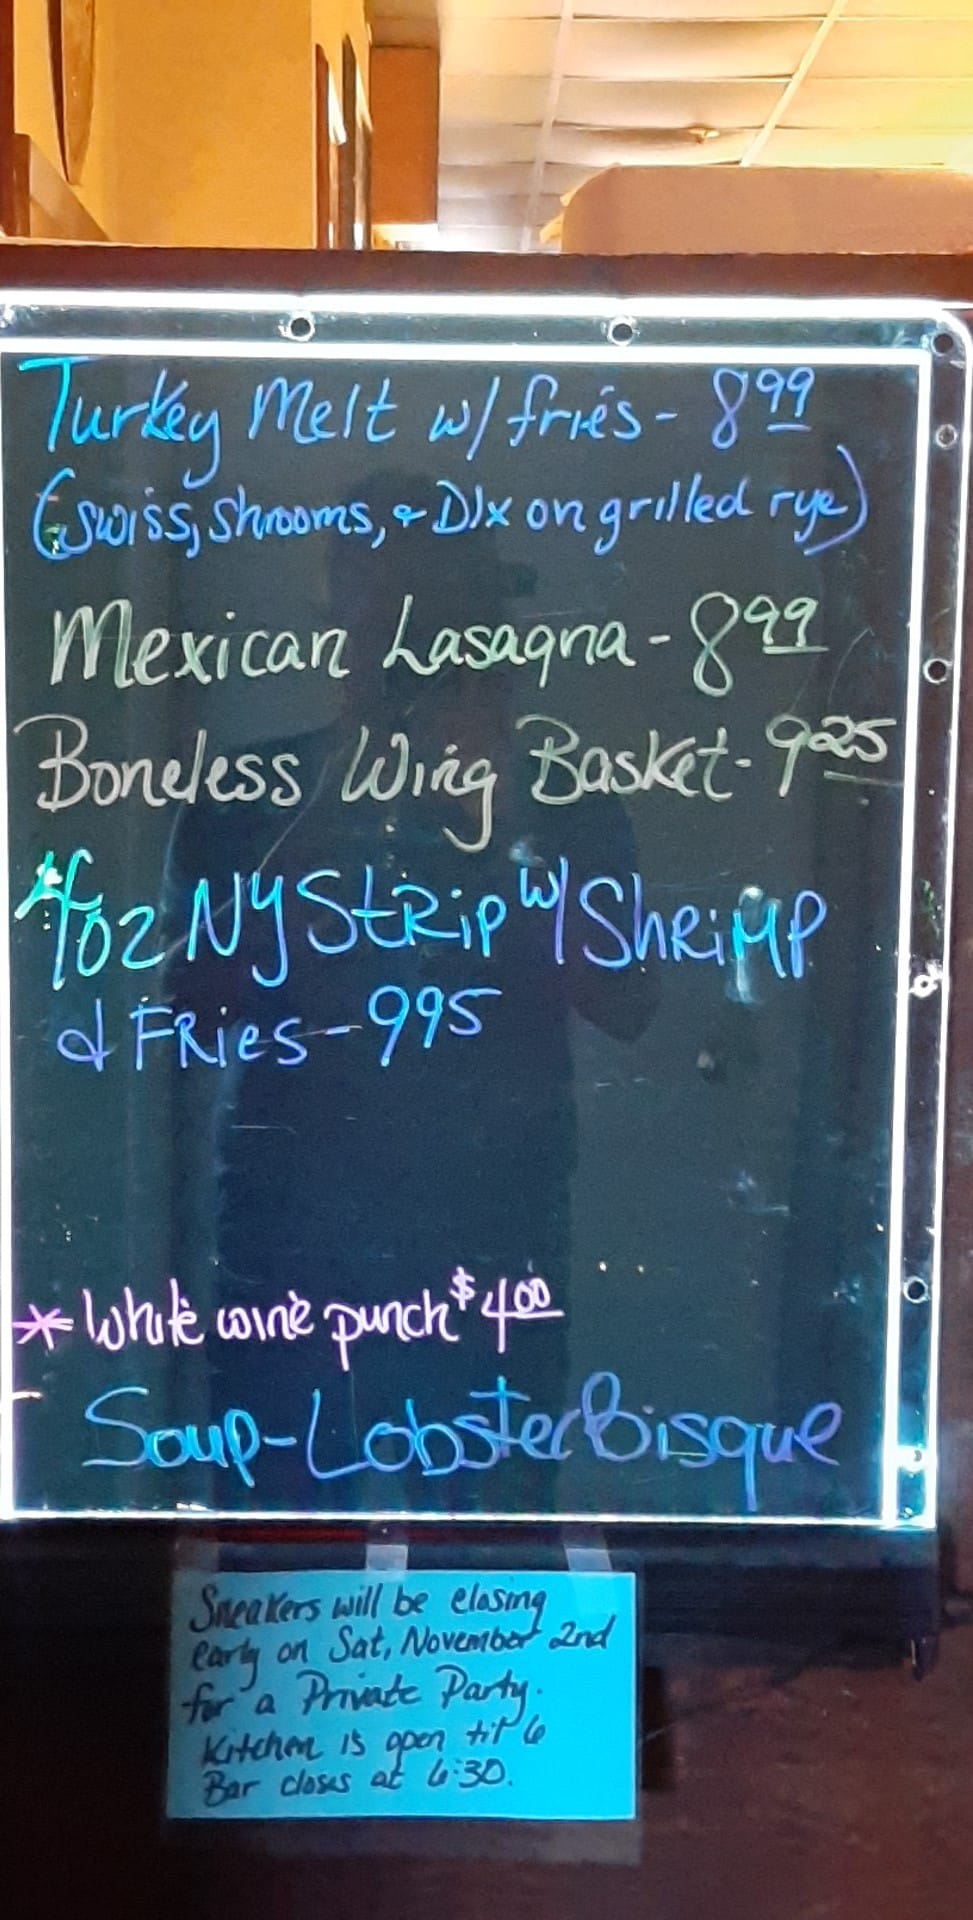 Turkey Melt w/ fries - 8 99
(swiss, shrooms, & Dlx on grilled rye)
Mexican Lasagna - 8 99
Boneless Wing Basket - 9 25
4oz NY Strip w/ Shrimp
& Fries - 995
* White wine punch $4 00
Soup - Lobster Bisque
Sneakers will be closing
early on Sat, November 2nd
for a Private Party.
Kitchen is open til 6
Bar closes at 6:30.